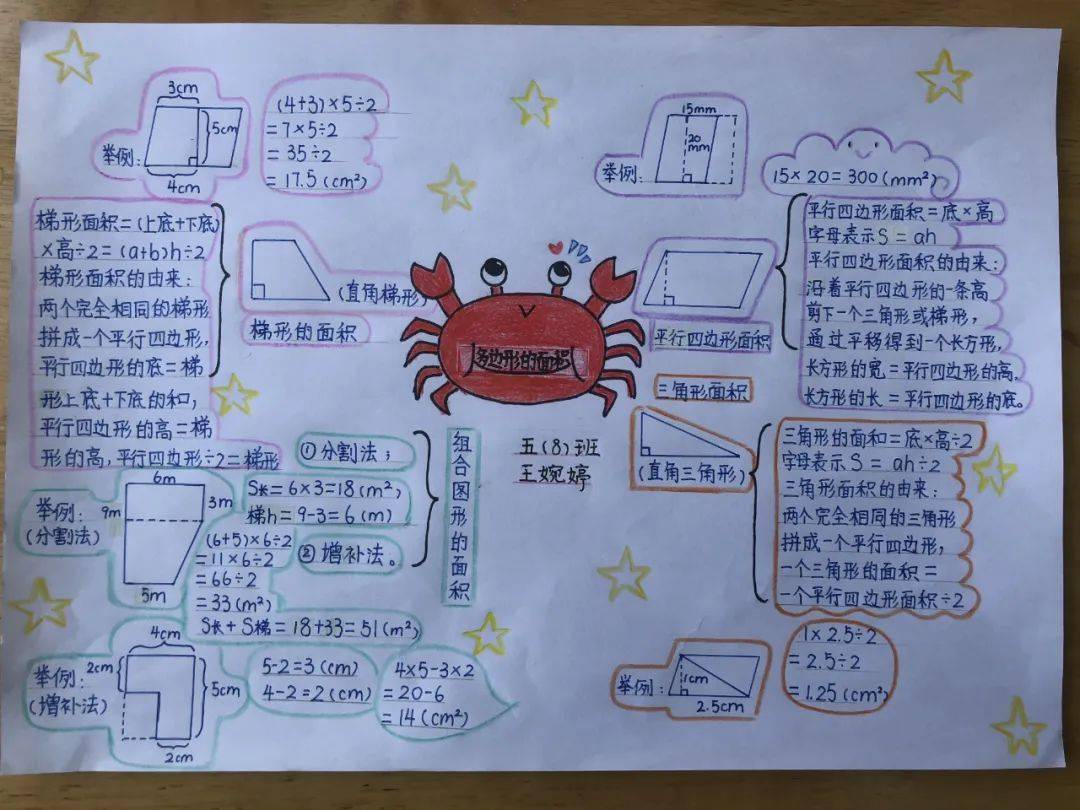 3cm
5cm
举例：
4cm
(4+3)×5÷2
=7×5÷2
=35÷2
=17.5(cm²)
梯形面积=(上底+下底)
×高÷2=(a+b)h÷2
梯形面积的由来：
两个完全相同的梯形
拼成一个平行四边形，
平行四边形的底=梯
形上底+下底的和，
平行四边形的高=梯
形的高，平行四边形÷2=梯形
(直角梯形)
梯形的面积
多边形的面积
五(8)班
王婉婷
15mm
20
mm
举例：
15×20=300(mm²)
平行四边形面积=底×高
字母表示S=ah
平行四边形面积的由来：
沿着平行四边形的一条高
剪下一个三角形或梯形，
通过平移得到一个长方形，
长方形的宽=平行四边形的高，
长方形的长=平行四边形的底。
平行四边形面积
三角形面积
(直角三角形)
三角形的面和=底×高÷2
字母表示S=ah÷2
三角形面积的由来：
两个完全相同的三角形
拼成一个平行四边形，
一个三角形的面积=
一个平行四边形面积÷2
举例：
1cm
2.5cm
1×2.5÷2
=2.5÷2
=1.25(cm²)
组合图形的面积
①分割法；
②增补法。
举例：
(分割法)
6m
9m
3m
5m
S长=6×3=18(m²)
梯h=9-3=6(m)
(6+5)×6÷2
=11×6÷2
=66÷2
=33(m²)
S长+S梯=18+33=51(m²)
举例：
(增补法)
4cm
2cm
5cm
2cm
5-2=3(cm)
4-2=2(cm)
4×5-3×2
=20-6
=14(cm²)